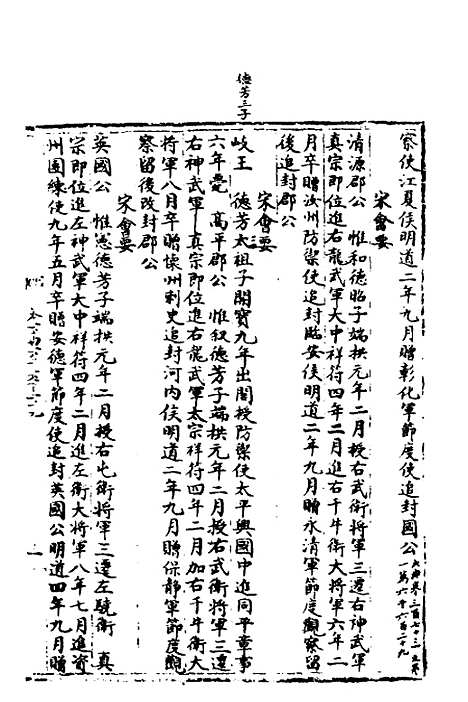 德芳三子
察使江夏侯明道二年九月贈彰化軍節度使追封國公
宋會要
清源郡公　惟和德昭子端拱元年二月授右武衛將軍三遷右神武軍
真宗即位進右龍武軍大中祥符四年二月進右千牛衛大將軍六年二
月卒贈汝州防禦使追封臨安侯明道二年九月贈永清軍節度觀察留
後追封郡公
宋會要
岐王　德芳太祖子開寶九年出閤授防禦使太平興國中進同平章事
六年薨　高平郡公　惟叙德芳子端拱元年二月授右武衛將軍三遷
右神武軍　真宗即位進右龍武軍太宗祥符四年二月加右千牛衛大
將軍八月卒贈懷州刺史追封河內侯明道二年九月贈保靜軍節度觀
察留後改封郡公
宋會要
英國公　惟憲德芳子端拱元年二月授右屯衛將軍三遷左驍衛　真
宗即位進左神武軍大中祥符四年二月進左衛大將軍八年七月進資
州團練使九年五月卒贈安德軍節度使追封英國公明道四年九月贈
一